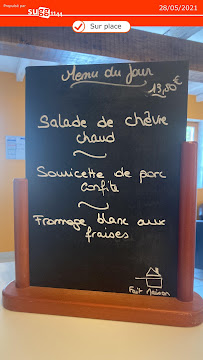 Proposé par
28/05/2021
Sur place
Menu du Jour
13,50€
Salade de chèvre
chaud
Souricette de porc
confite
Fromage blanc aux
fraises
Fait maison